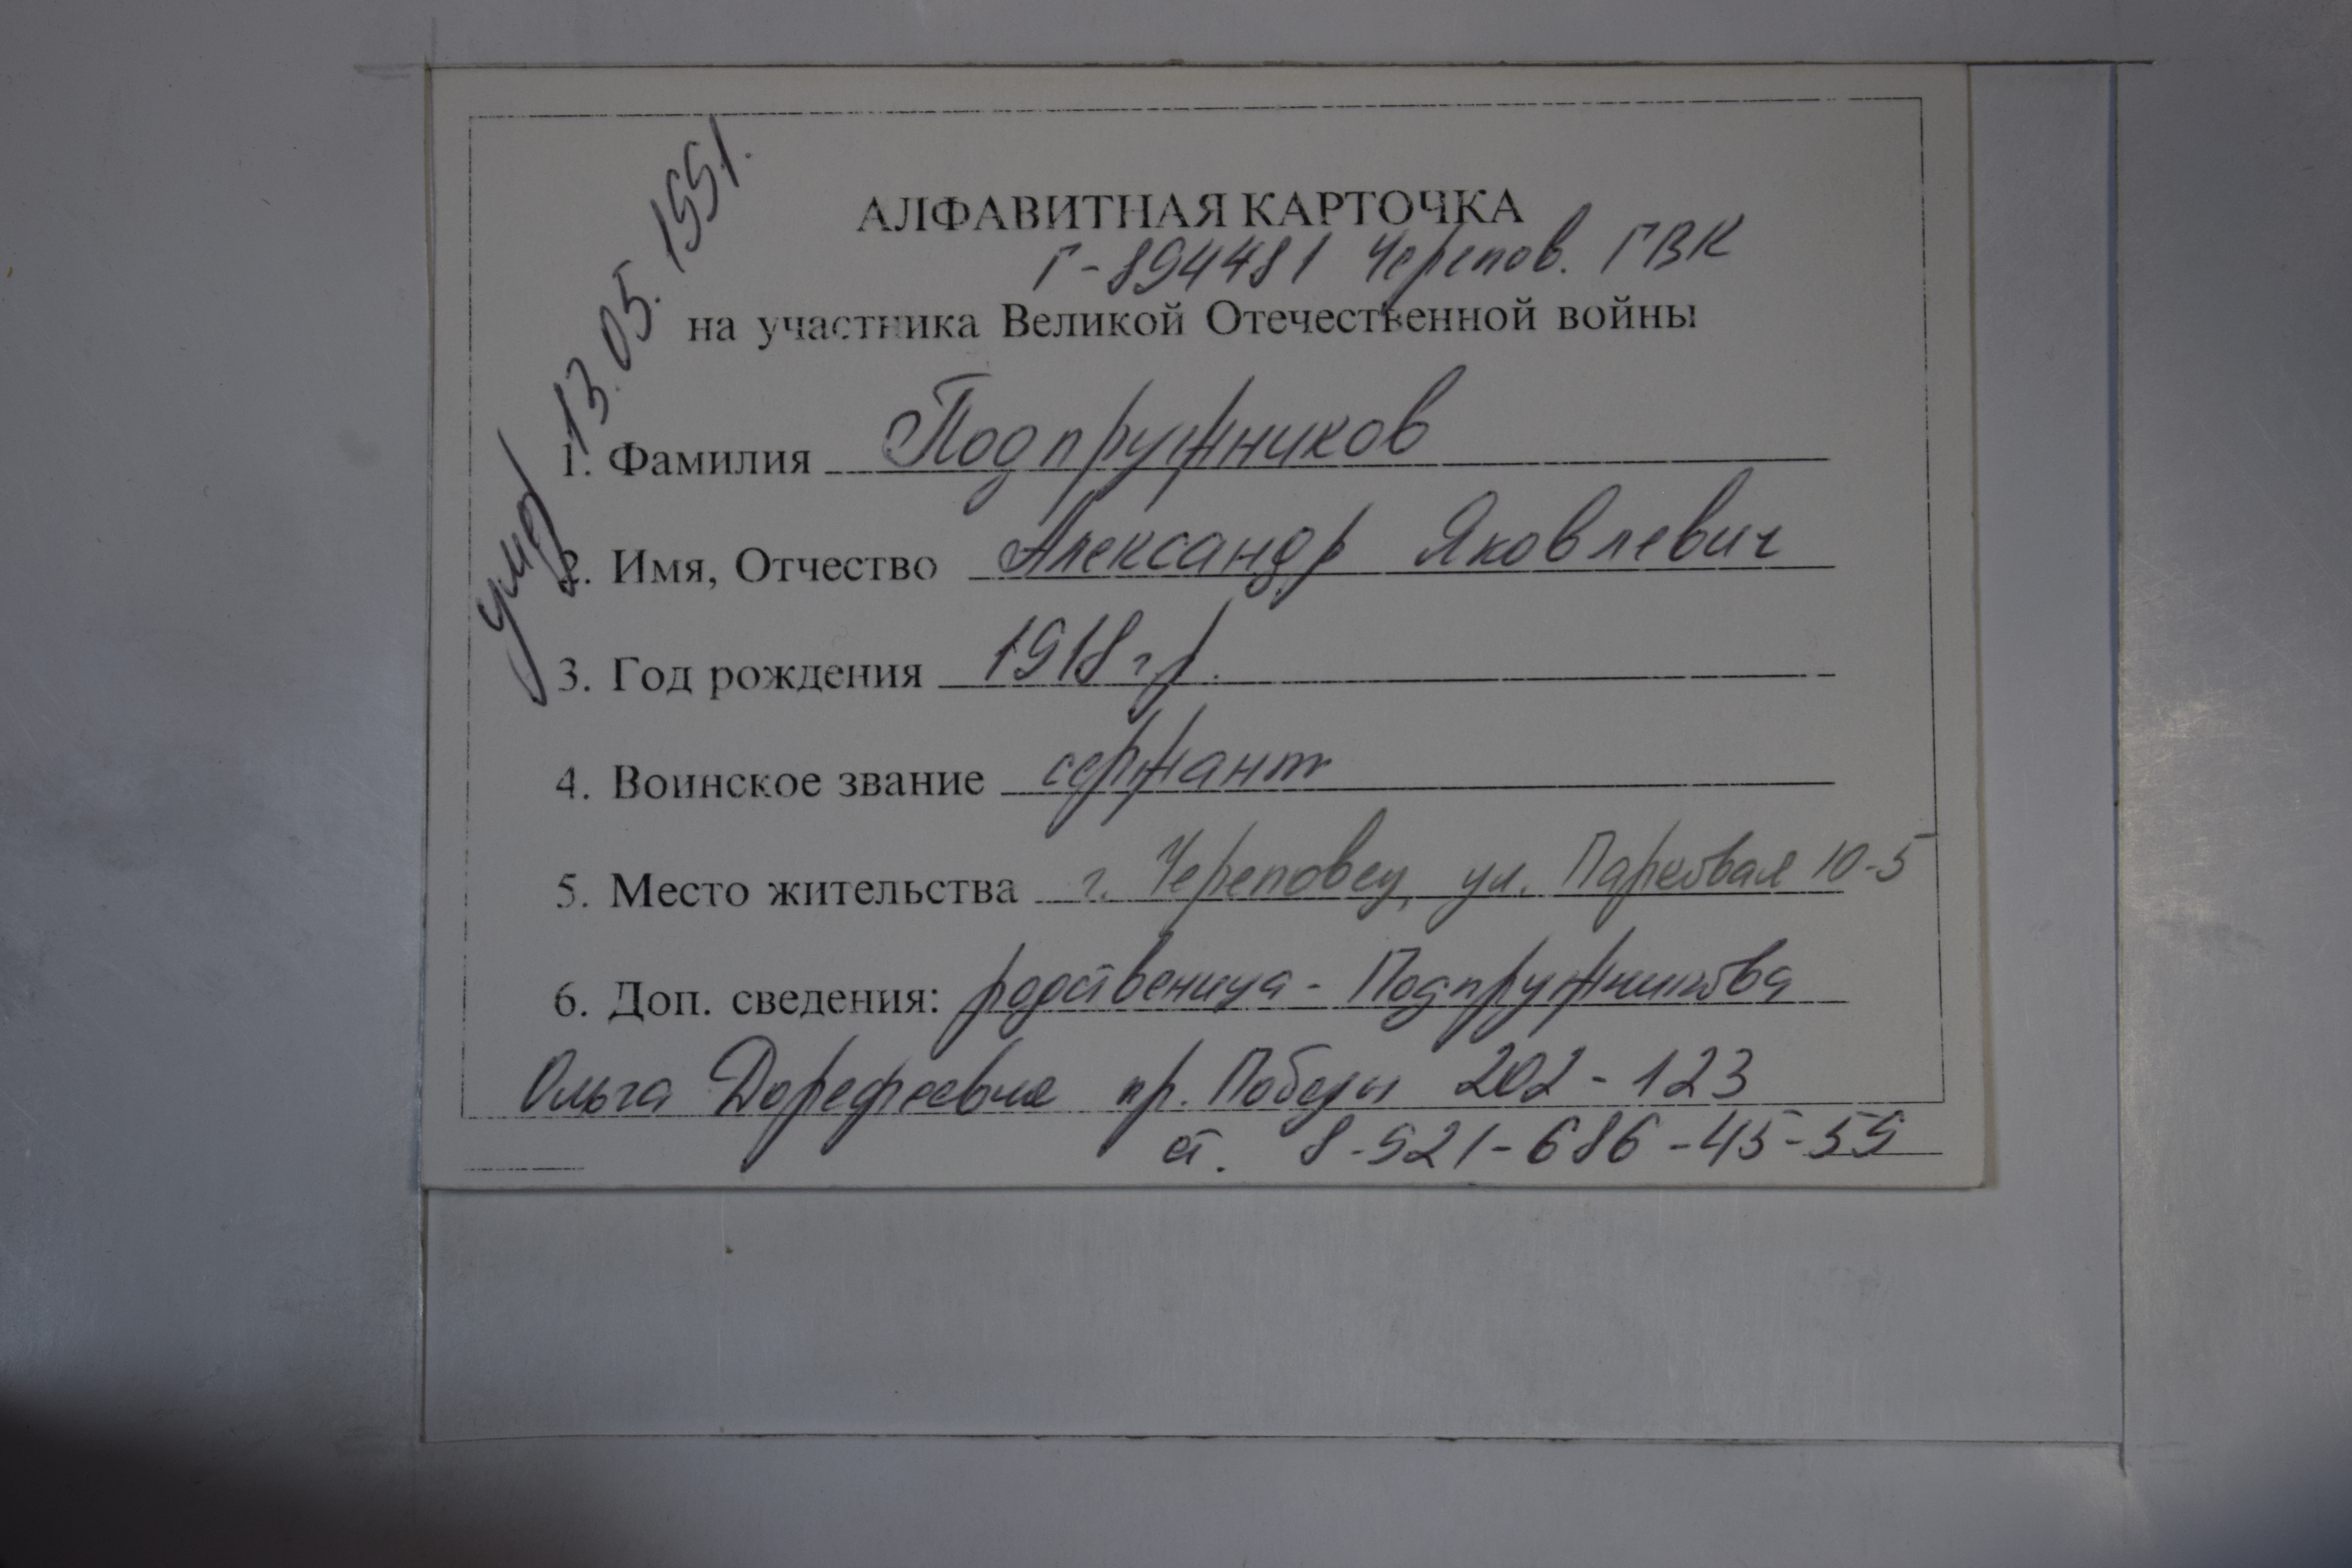 умер 13.05.1991.
АЛФАВИТНАЯ КАРТОЧКА
Г-894481 Черепов. ГВК
на участника Великой Отечественной войны
1. Фамилия Подпружников
2. Имя, Отчество Александр Яковлевич
3. Год рождения 1918 г.р.
4. Воинское звание сержант
5. Место жительства г. Череповец, ул. Парковая 10-5
6. Доп. сведения: родственица - Подпружникова
Ольга Дорефеевна пр. Победы 202-123
8-921-686-45-59